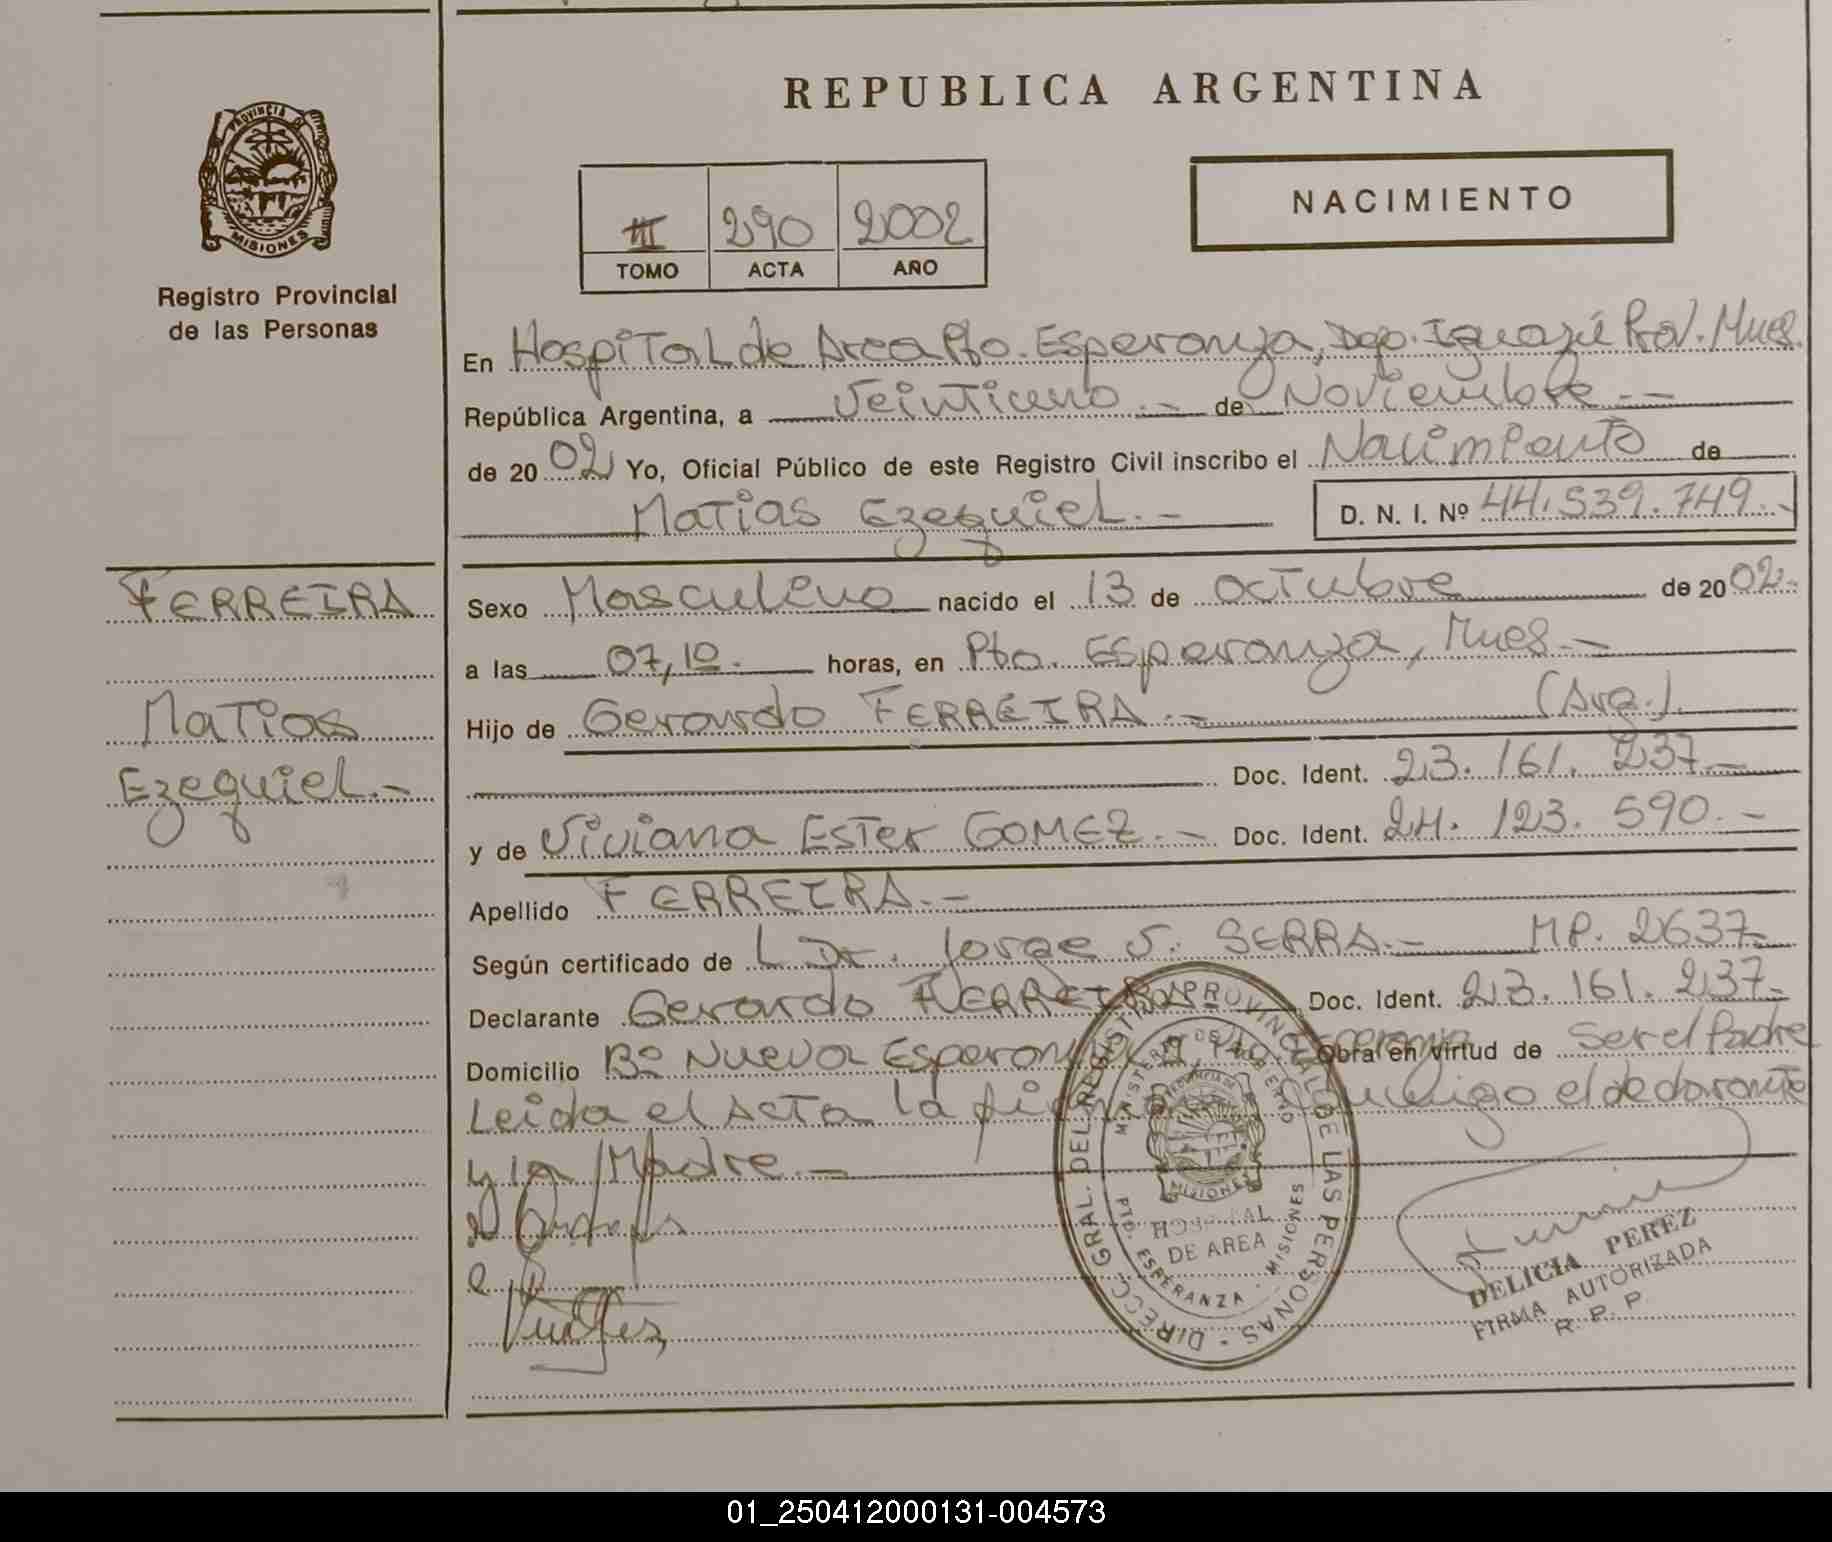 REPUBLICA ARGENTINA
PROVINCIA DE
MISIONES
Registro Provincial
de las Personas
III 290 2002
TOMO ACTA AÑO
NACIMIENTO
En Hospital de Area Pto. Esperanza, Dep. Iguazú Prov. Mnes.
República Argentina, a Veintiuno.- de Noviembre.-
de 2002 Yo, Oficial Público de este Registro Civil inscribo el Nacimiento de
Matias Ezequiel.- D. N. I. Nº 44.539.749.-
FERREIRA
Matias
Ezequiel.-
Sexo Masculino nacido el 13 de Octubre de 2002.-
a las 07,10. horas, en Pto. Esperanza, Mnes.-
Hijo de Gerardo FERREIRA.- (Arg.).
Doc. Ident. 23.161.237.-
y de Viviana Ester GOMEZ.- Doc. Ident. 24.123.590.-
Apellido FERREIRA.-
Según certificado de L Dr. Jorge S. SERRA.- MP. 2637-
Declarante Gerardo FERREIRA Doc. Ident. 23.161.237-
Domicilio Bº Nueva Esperanza Pto. Esperanza Obra en virtud de Ser el Padre
Leida el Acta la firma conmigo el declarante
y la Madre.-
DIRECC. GRAL. DEL REGISTRO PROVINCIAL DE LAS PERSONAS
MINISTERIO DE GOBIERNO
PROVINCIA DE
MISIONES
HOSPITAL
DE AREA
PTO. ESPERANZA - MISIONES
DELICIA PEREZ
FIRMA AUTORIZADA
R. P. P.
01_250412000131-004573